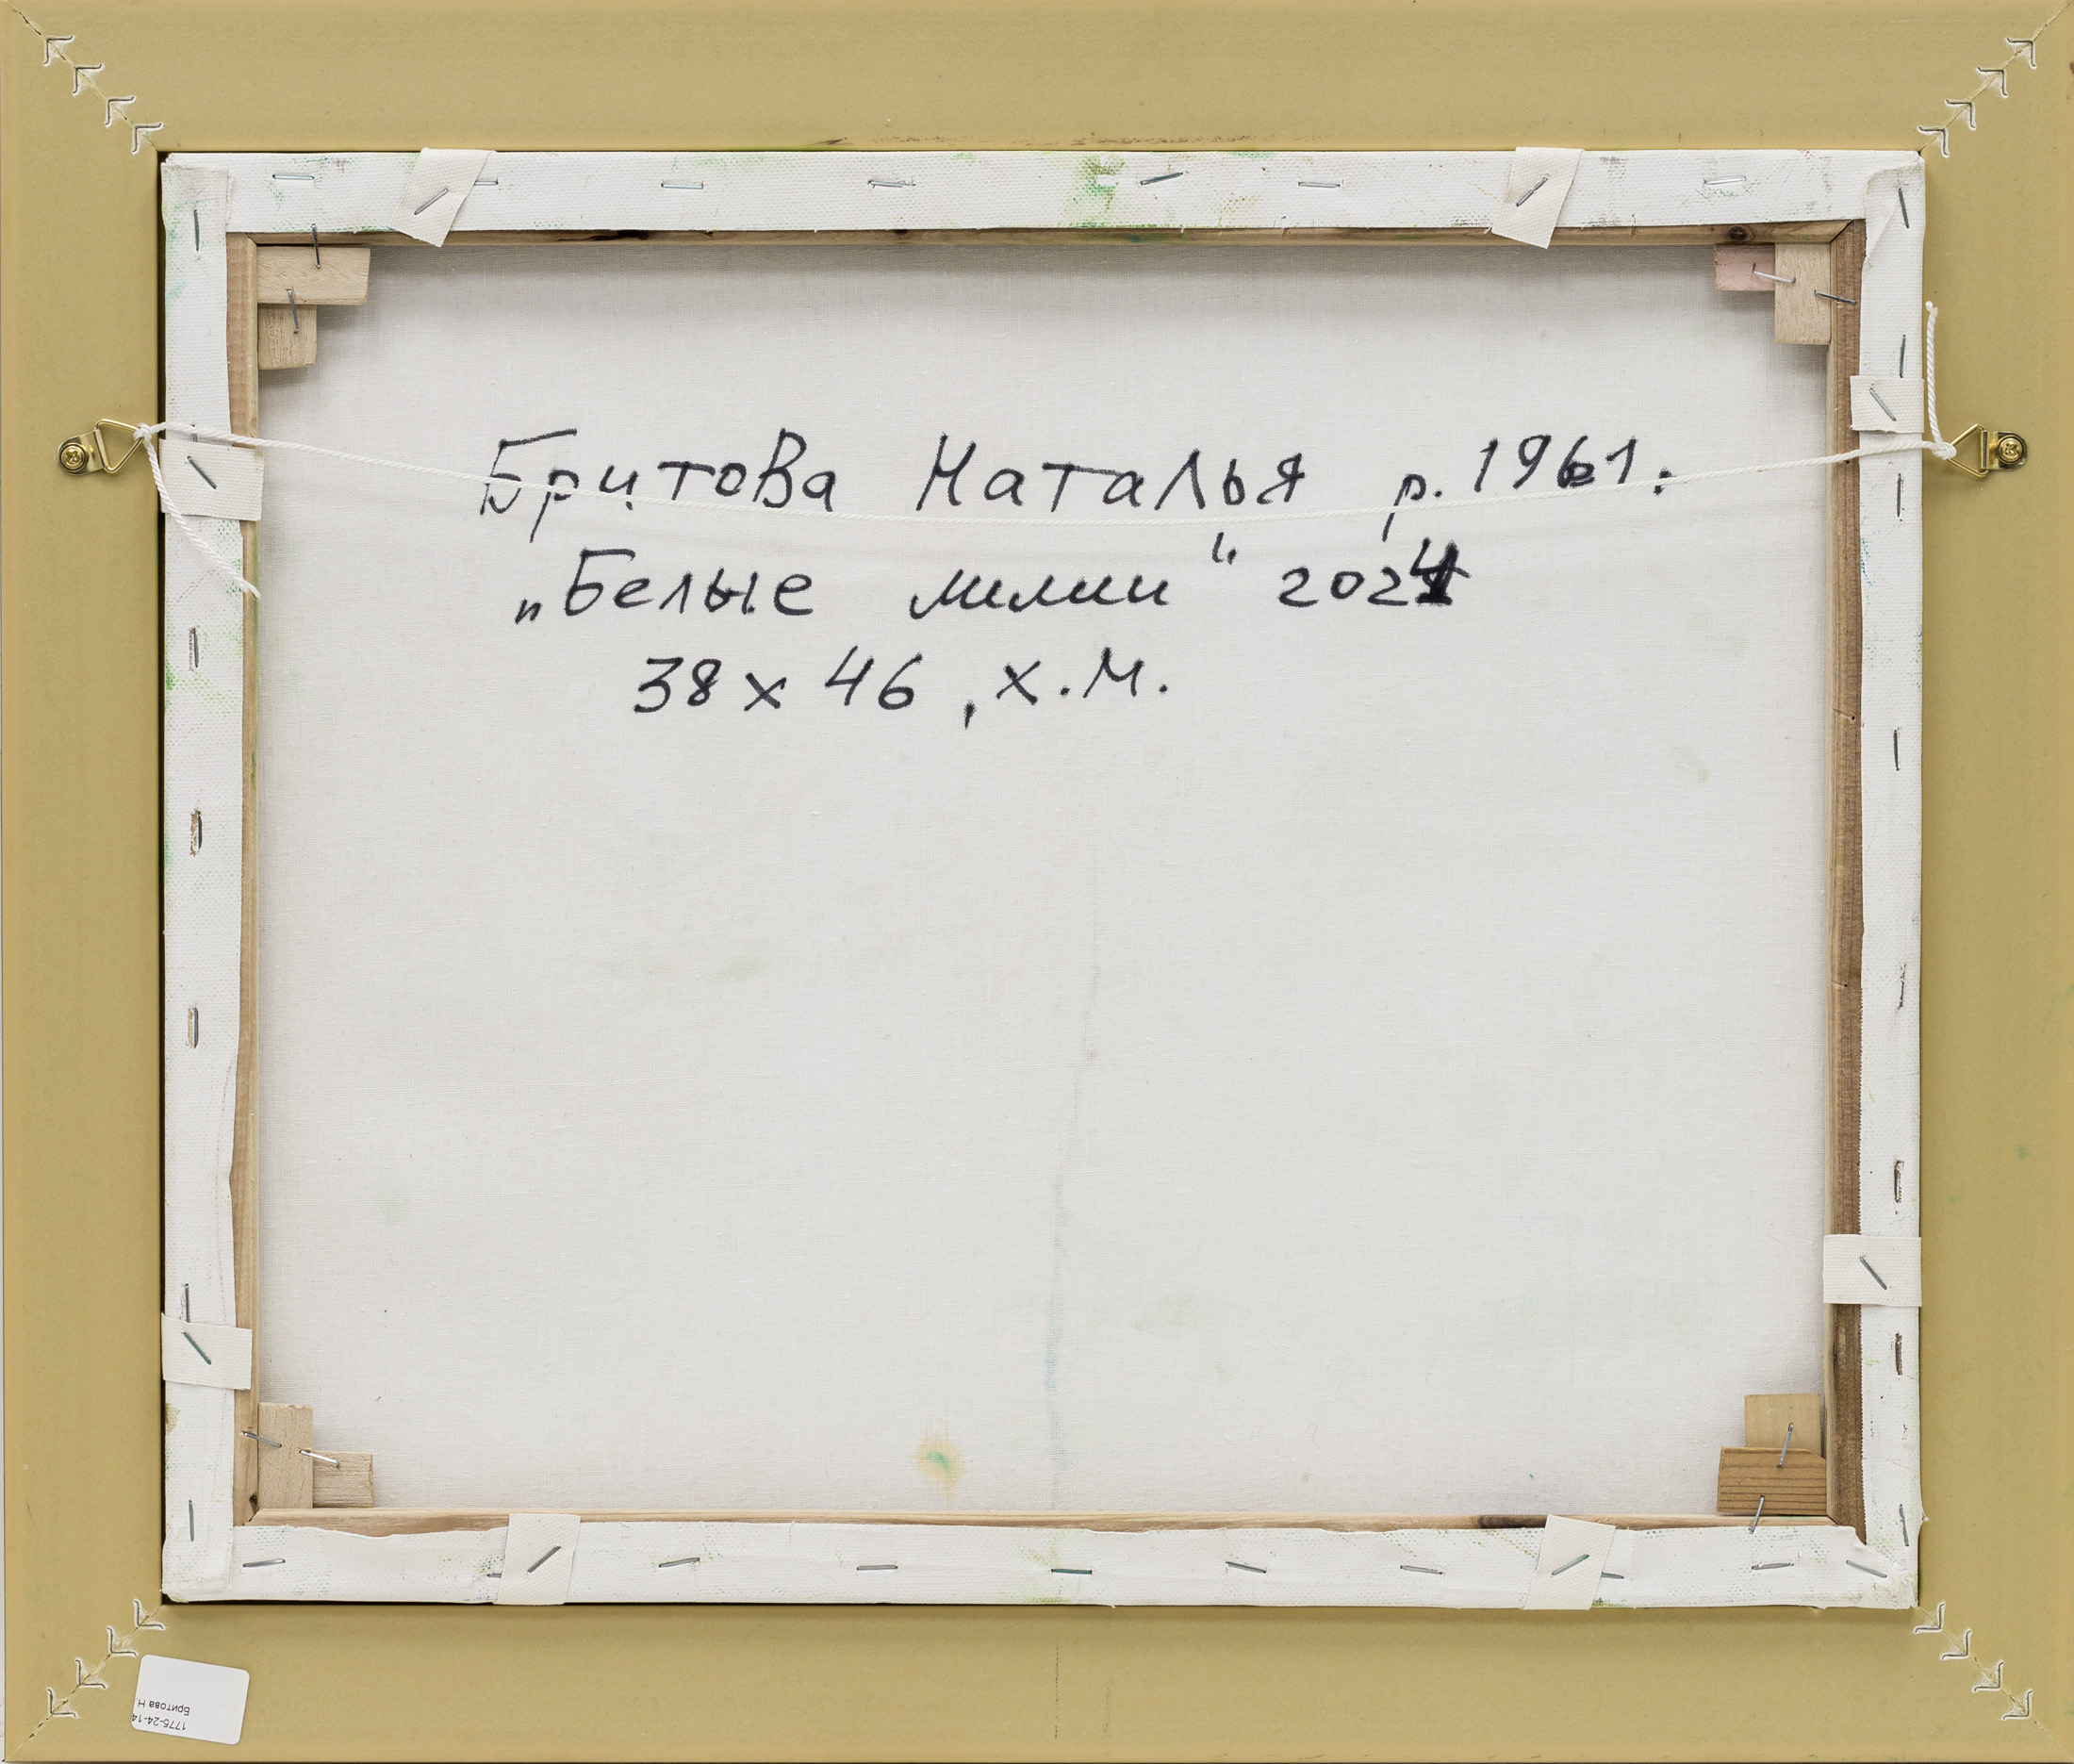 Бритова Наталья р. 1961.
„Белые лилии“ 2024
38 х 46, х.м.
1775-24-14
Бритова Н